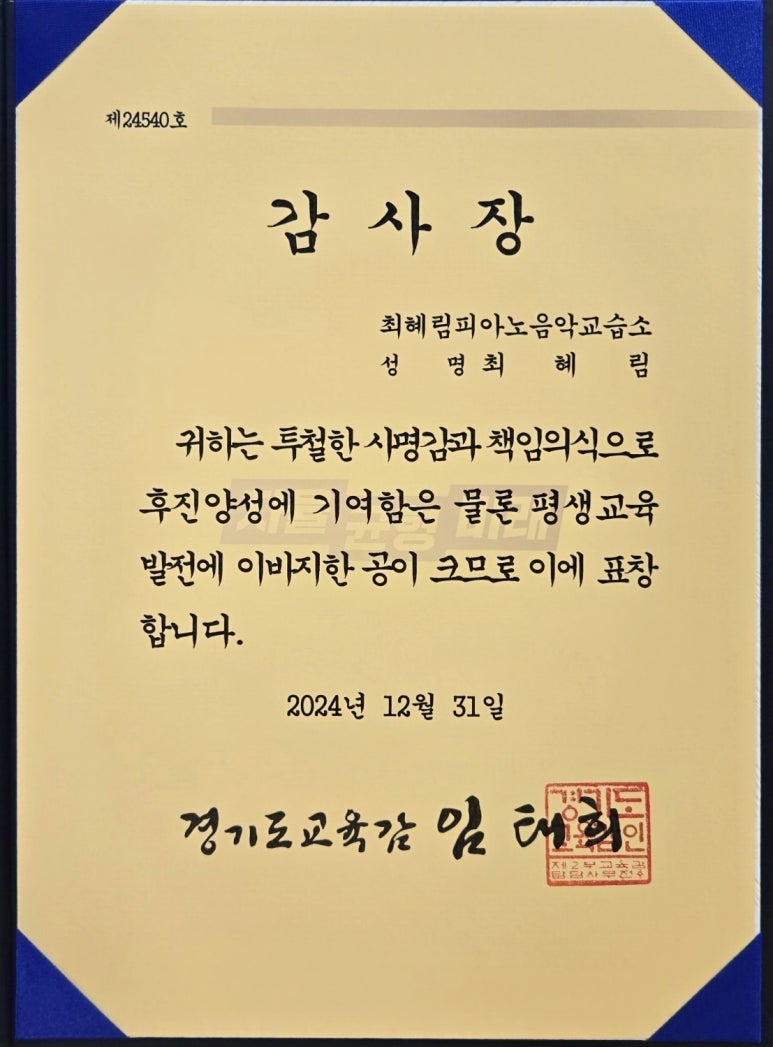 제24540호
감 사 장
최혜림피아노음악교습소
성 명 최 혜 림
귀하는 투철한 사명감과 책임의식으로
후진양성에 기여함은 물론 평생교육
발전에 이바지한 공이 크므로 이에 표창
합니다.
자율 균형 미래
2024년 12월 31일
경기도교육감 임태희
경기도
교육감인